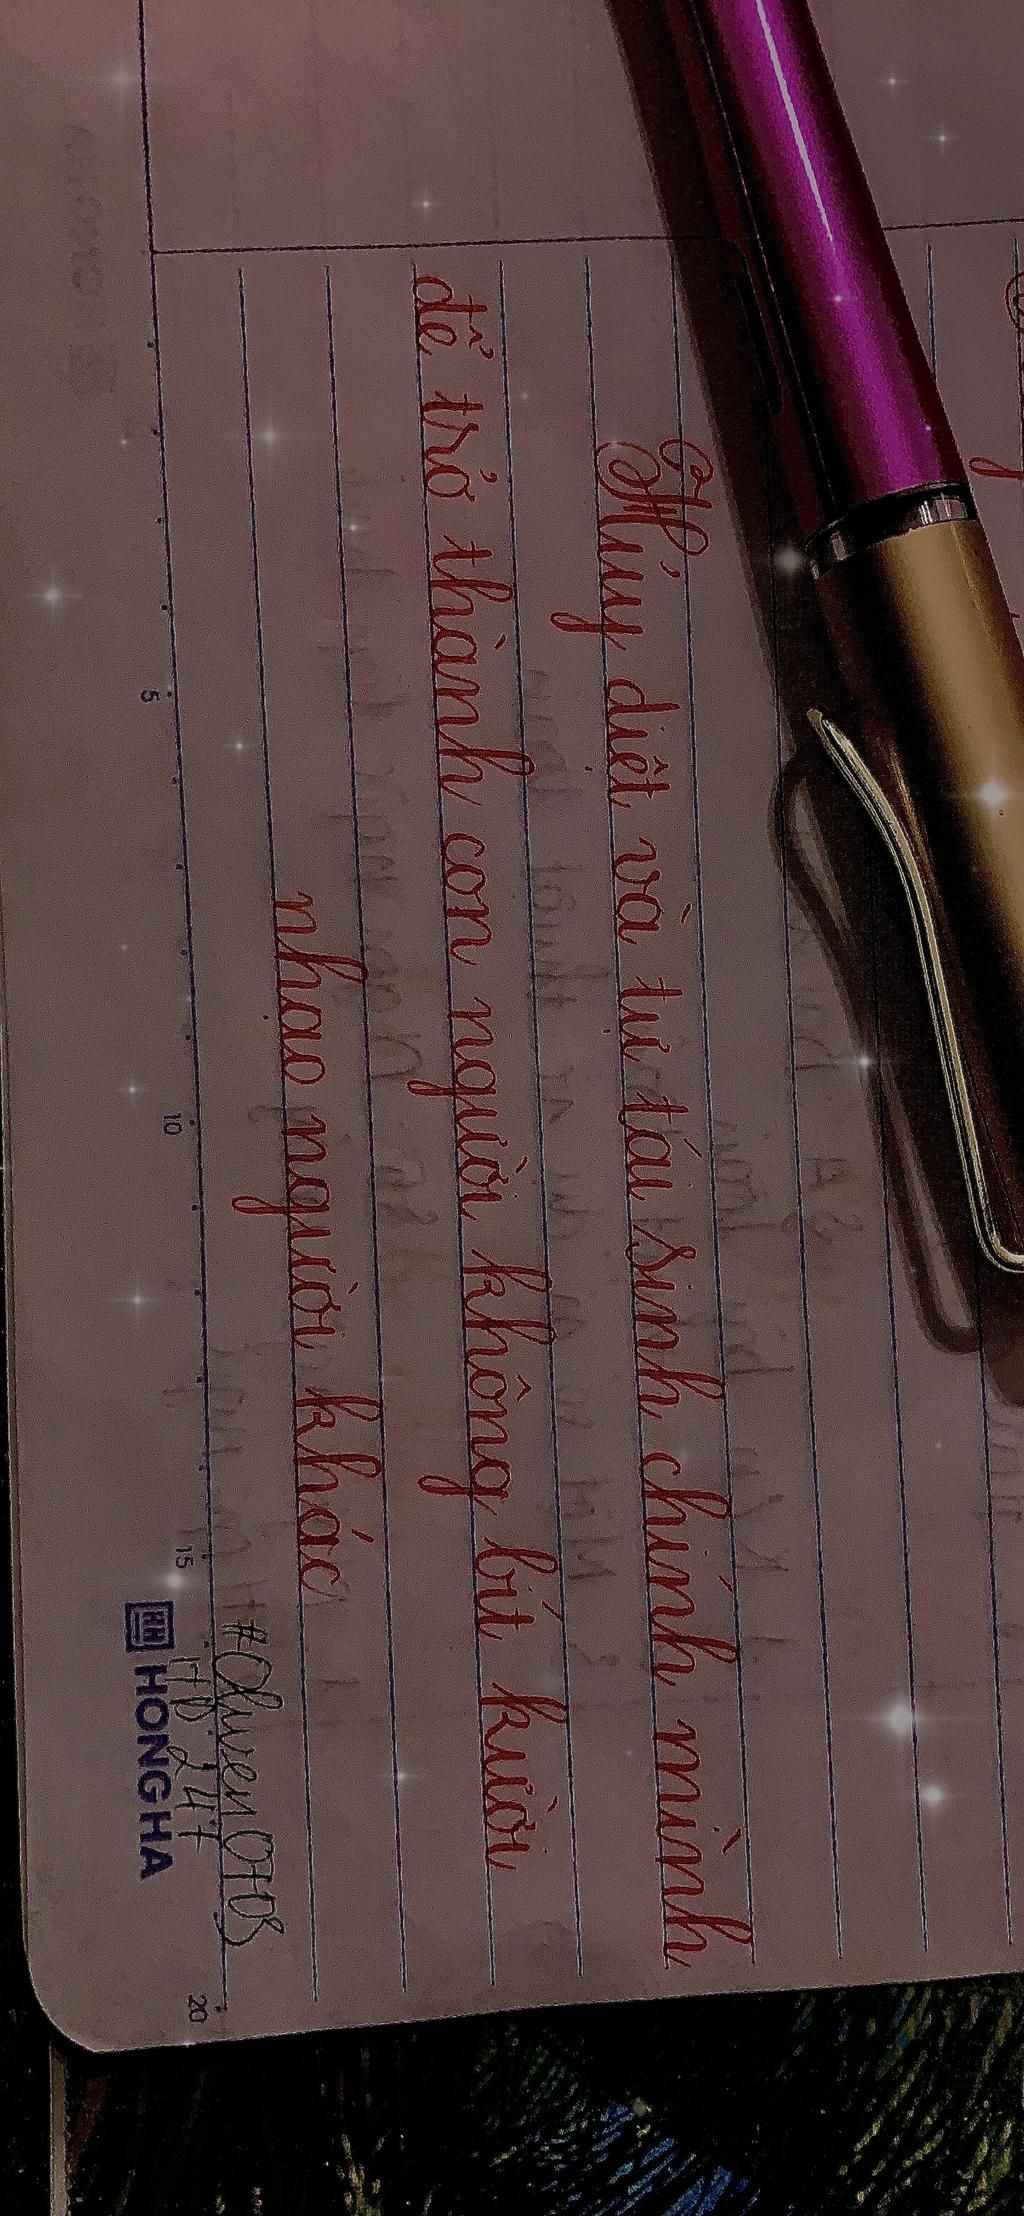 Hủy diệt và tự tái sinh chính mình
để trở thành con người không bít kười
nhạo người khác
#Quyen0708
HB 247
HONG HA
5
10
15
20